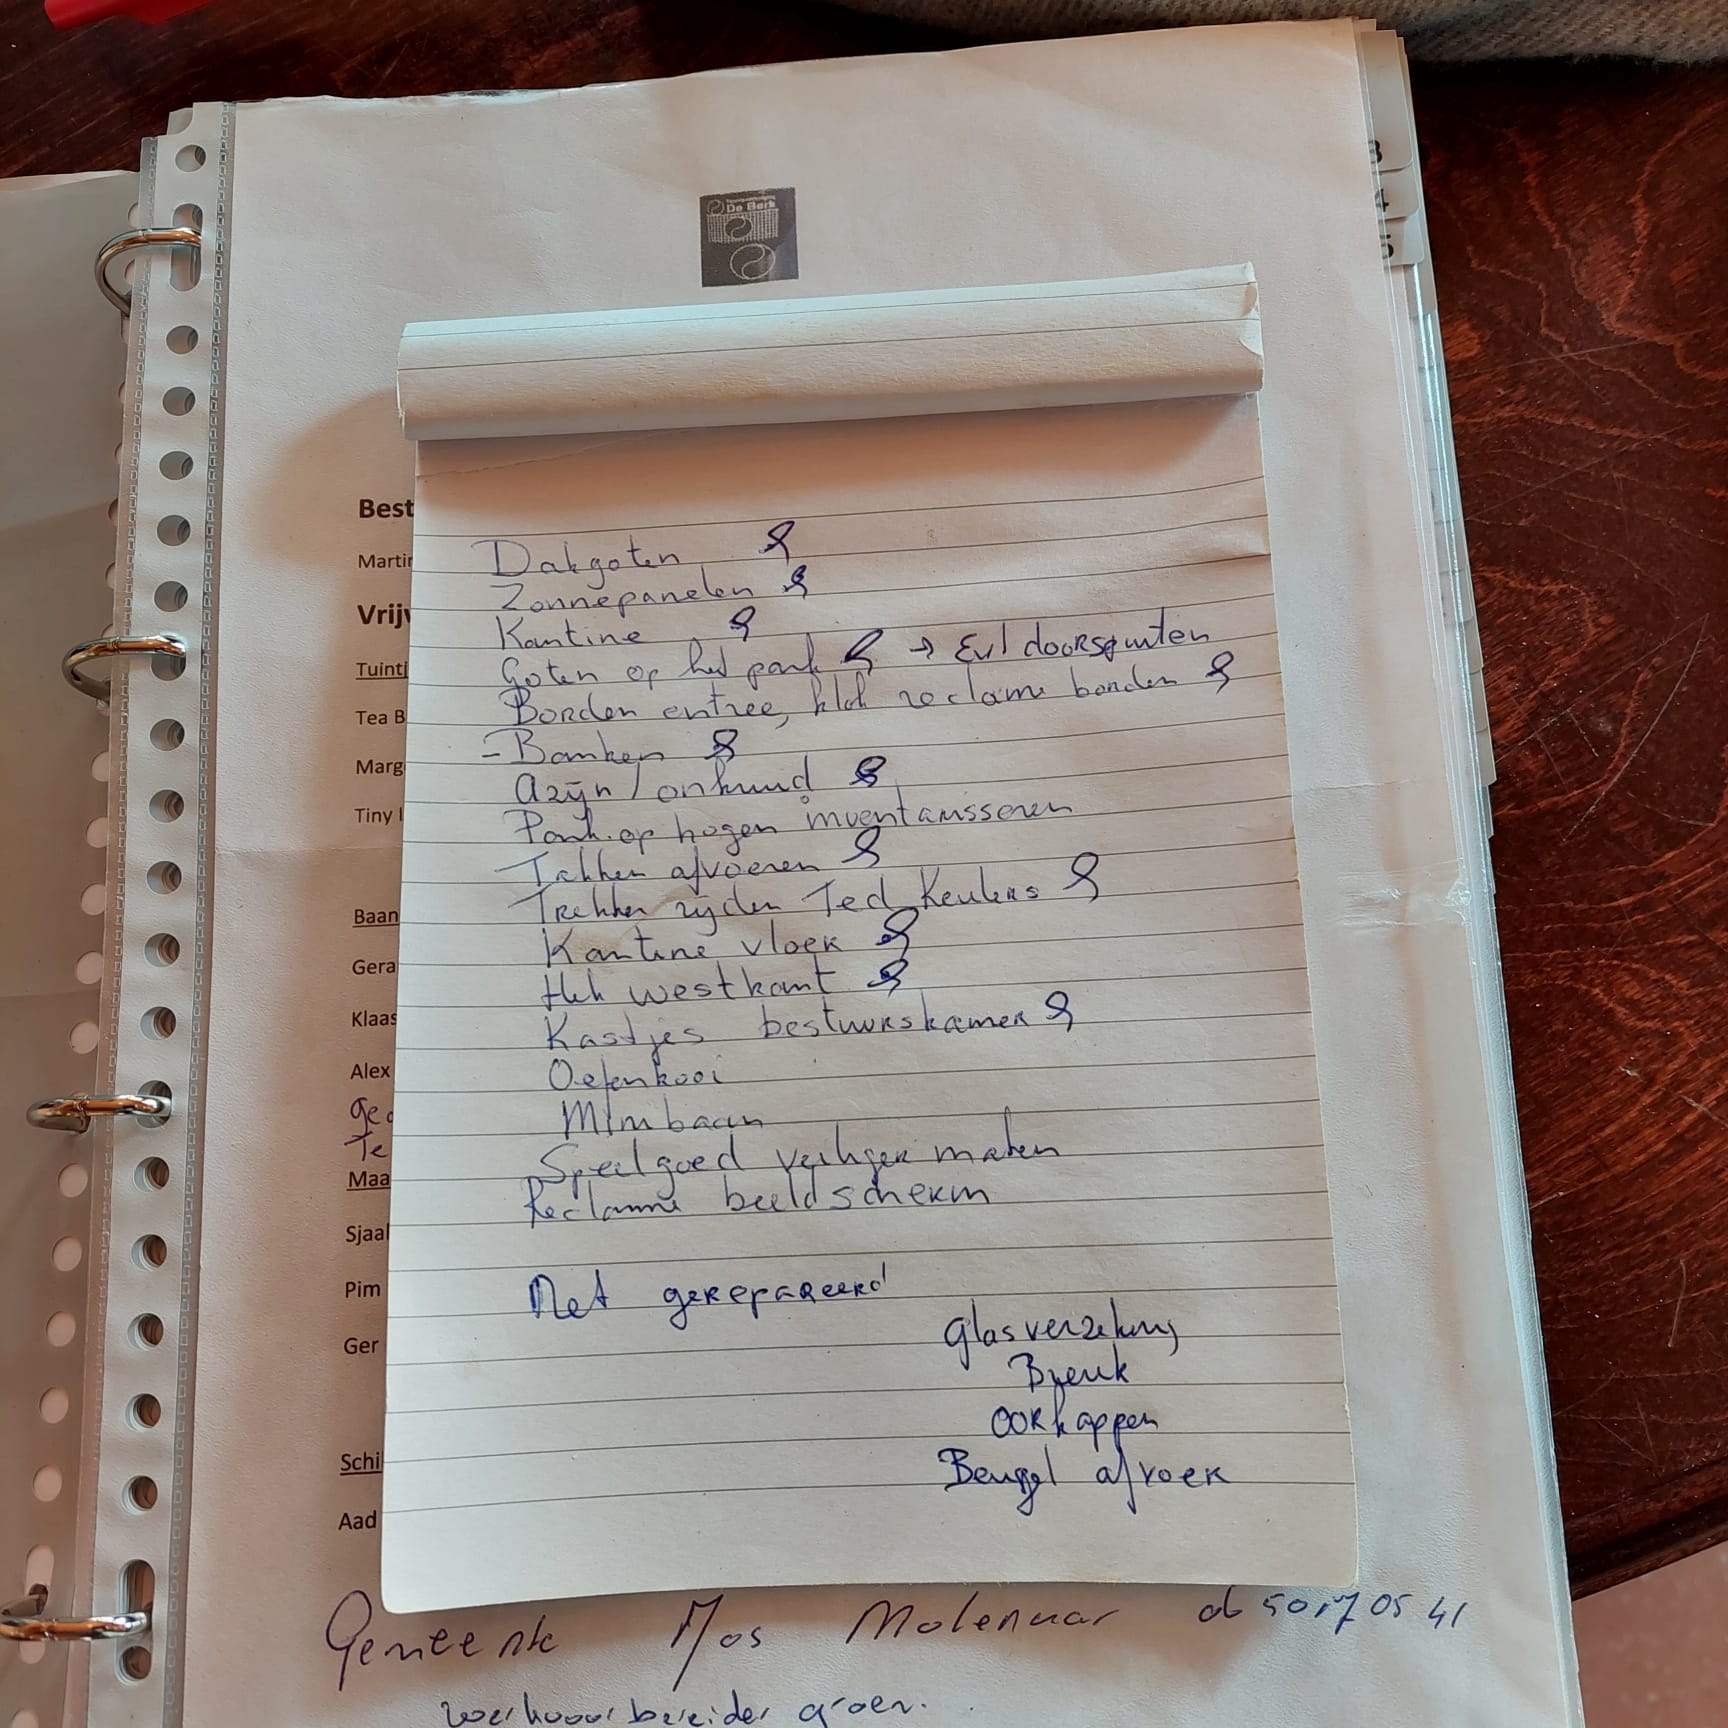 3
4
5
De Berk
Best
Martin
Vrijw
Tuintj
Tea B
Marg
Tiny
Baan
Gera
Klaas
Alex
Ge
Te
Maa
Sjaa
Pim
Ger
Schil
Aad
Dakgoten
Zonnepanelen
Kantine
Goten op het park → Evt doorspuiten
Borden entree, klok reclame borden
- Banken
Azijn / onkruid
Park op hogen inventarisseren
Takken afvoeren
Trekker rijden Ted Keulers
Kantine vloer
Hek westkant
Kastjes bestuurskamer
Oefenkooi
Minibaan
Speelgoed veiliger maken
Reclame beeldscherm
Net gerepareerd
Glasverzekering
Oorkappen
Beugel afvoer
Gemeente Molenaar
werkvoorbereider groen.